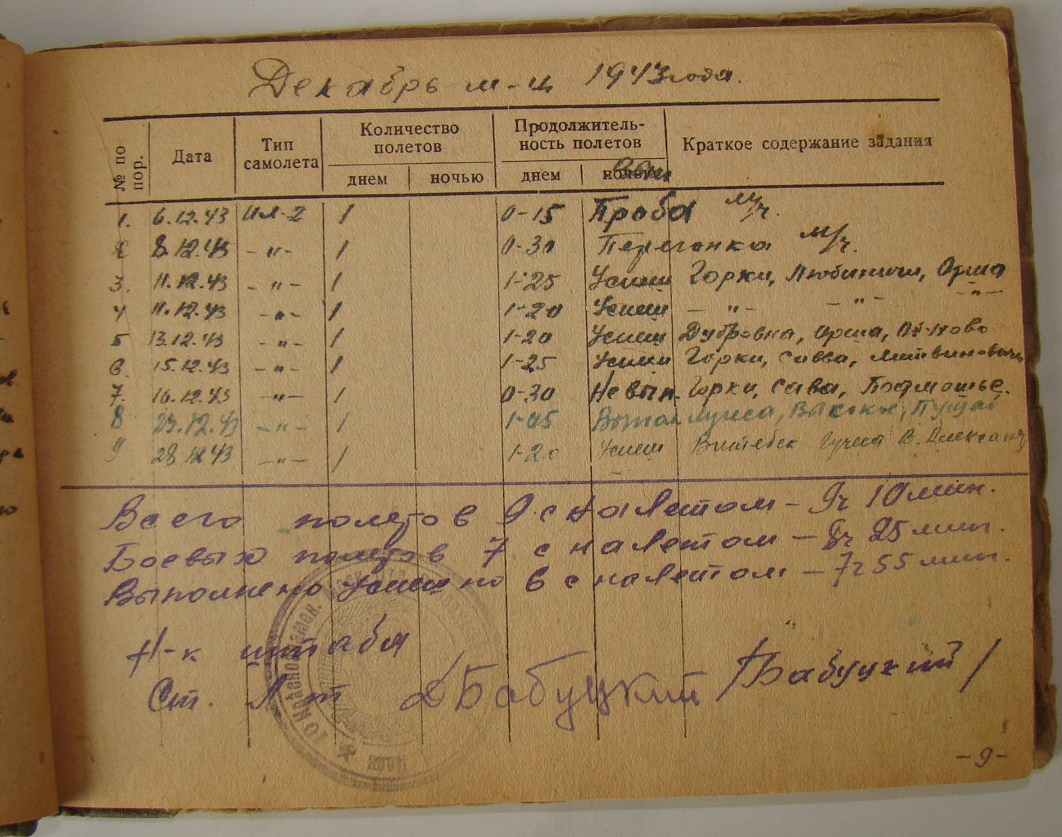 Декабрь м-ц 1943 года.
№ по пор. Дата Тип самолета Количество полетов Продолжитель-ность полетов Краткое содержание задания
днем ночью днем ночью
1. 6.12.43 Ил-2 1 0-15 Проба м/ч.
2 8.12.43 -"- 1 0-30 Перегонка м/ч.
3. 11.12.43 -"- 1 1-25 Успеш Горки, Орша
4 11.12.43 -"- 1 1-20 Успеш -"- -"- -"-
5 13.12.43 -"- 1 1-20 Успеш Дубровна, Орша,
6. 15.12.43 -"- 1 1-25 Успеш Горки, Савва,
7. 16.12.43 -"- 1 0-30 Не вып. Горки, Сава,
8 23.12.43 -"- 1 1-05
9 28.12.43 -"- 1 1-20 Успеш Витебск
Всего полетов 9 с налетом - 9ч 10 мин.
Боевых полетов 7 с налетом - 8ч 25 мин.
Выполнено успешно 6 с налетом - 7ч 55 мин.
Н-к штаба
Ст. Л-т Бабуцкий /Бабуцкий/
-9-